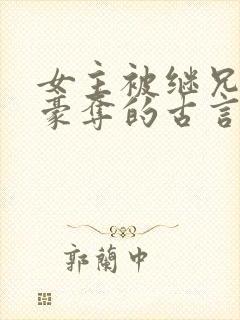 女主被继兄
豪夺的古言
郭蘭中